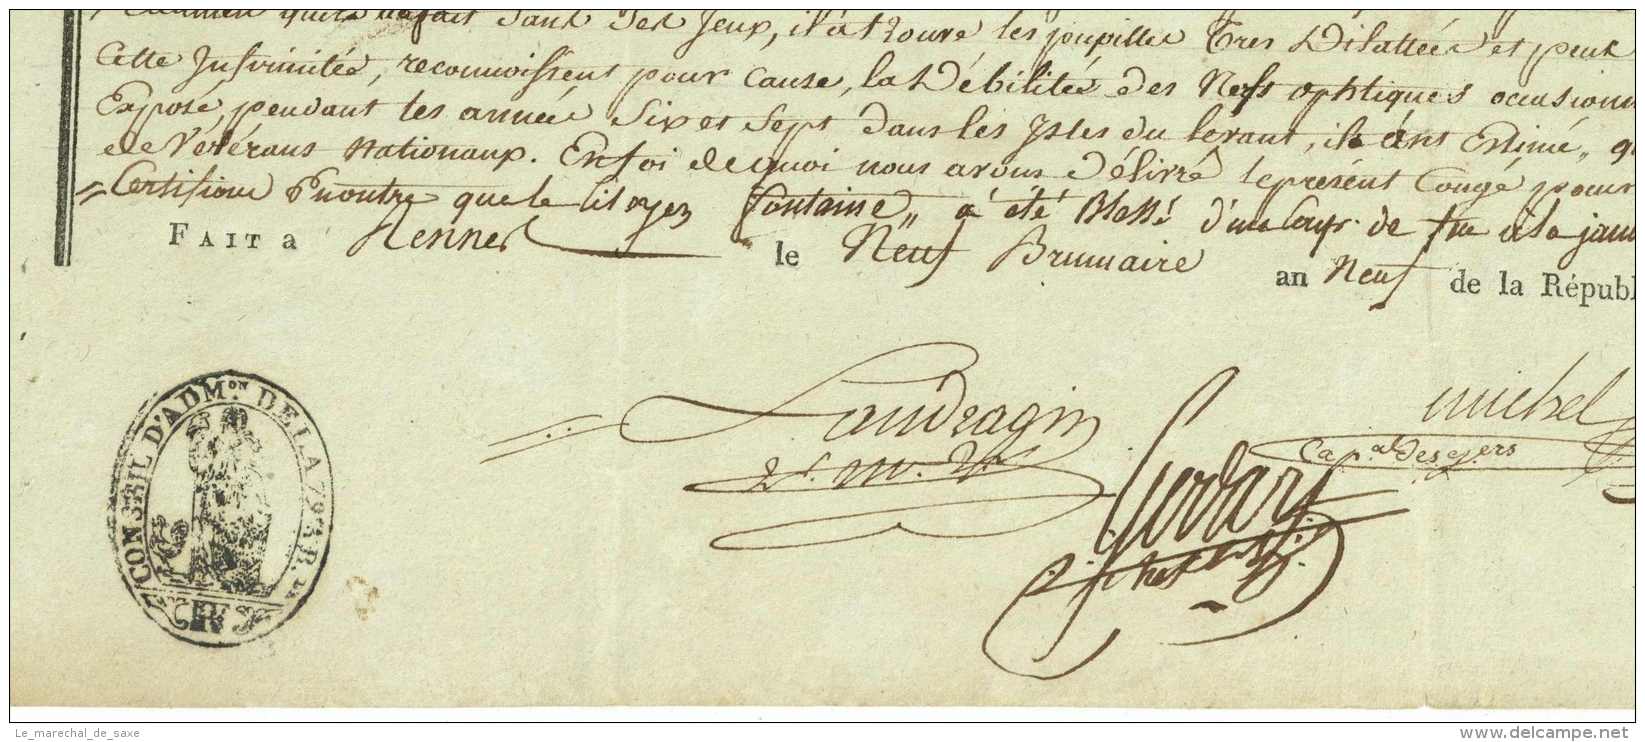 Examen quils a fait dans Ses Jeux, il à trouvé les pupilles Tres Dilattées et peut
Cette Infirmitée, reconnoissent pour Cause, la Débilitée des Nerfs ophtiques occasionn
Exposé, pendant les année Six et Sept dans les Isles du levant, ils ont Estimé, q
de Vétérans Nationaux. En foi de quoi nous avons Délivré le présent Congé, pour
= Certifions Enoutre que le Citoyen Fontaine, a été Blessé d'un Coup de feu à la jam
FAIT a Rennes le Neuf Brumaire an Neuf de la Républ
CONSEIL D'ADM.ON DE LA 79e 1/2 B. DE
Gaudragin
michel
Godart
Cap.al Desgers
Le_marechal_de_saxe
delcampe.net